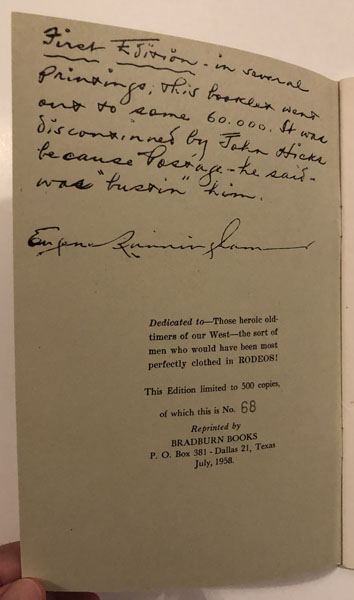 First Edition - in several
printings, this booklet went
out to some 60.000. It was
discontinued by John Hicks
because Postage - he said -
was "bustin" him.
Eugene Cunningham
Dedicated to—Those heroic old-
timers of our West—the sort of
men who would have been most
perfectly clothed in RODEOS!
This Edition limited to 500 copies,
of which this is No. 68
Reprinted by
BRADBURN BOOKS
P. O. Box 381 - Dallas 21, Texas
July, 1958.